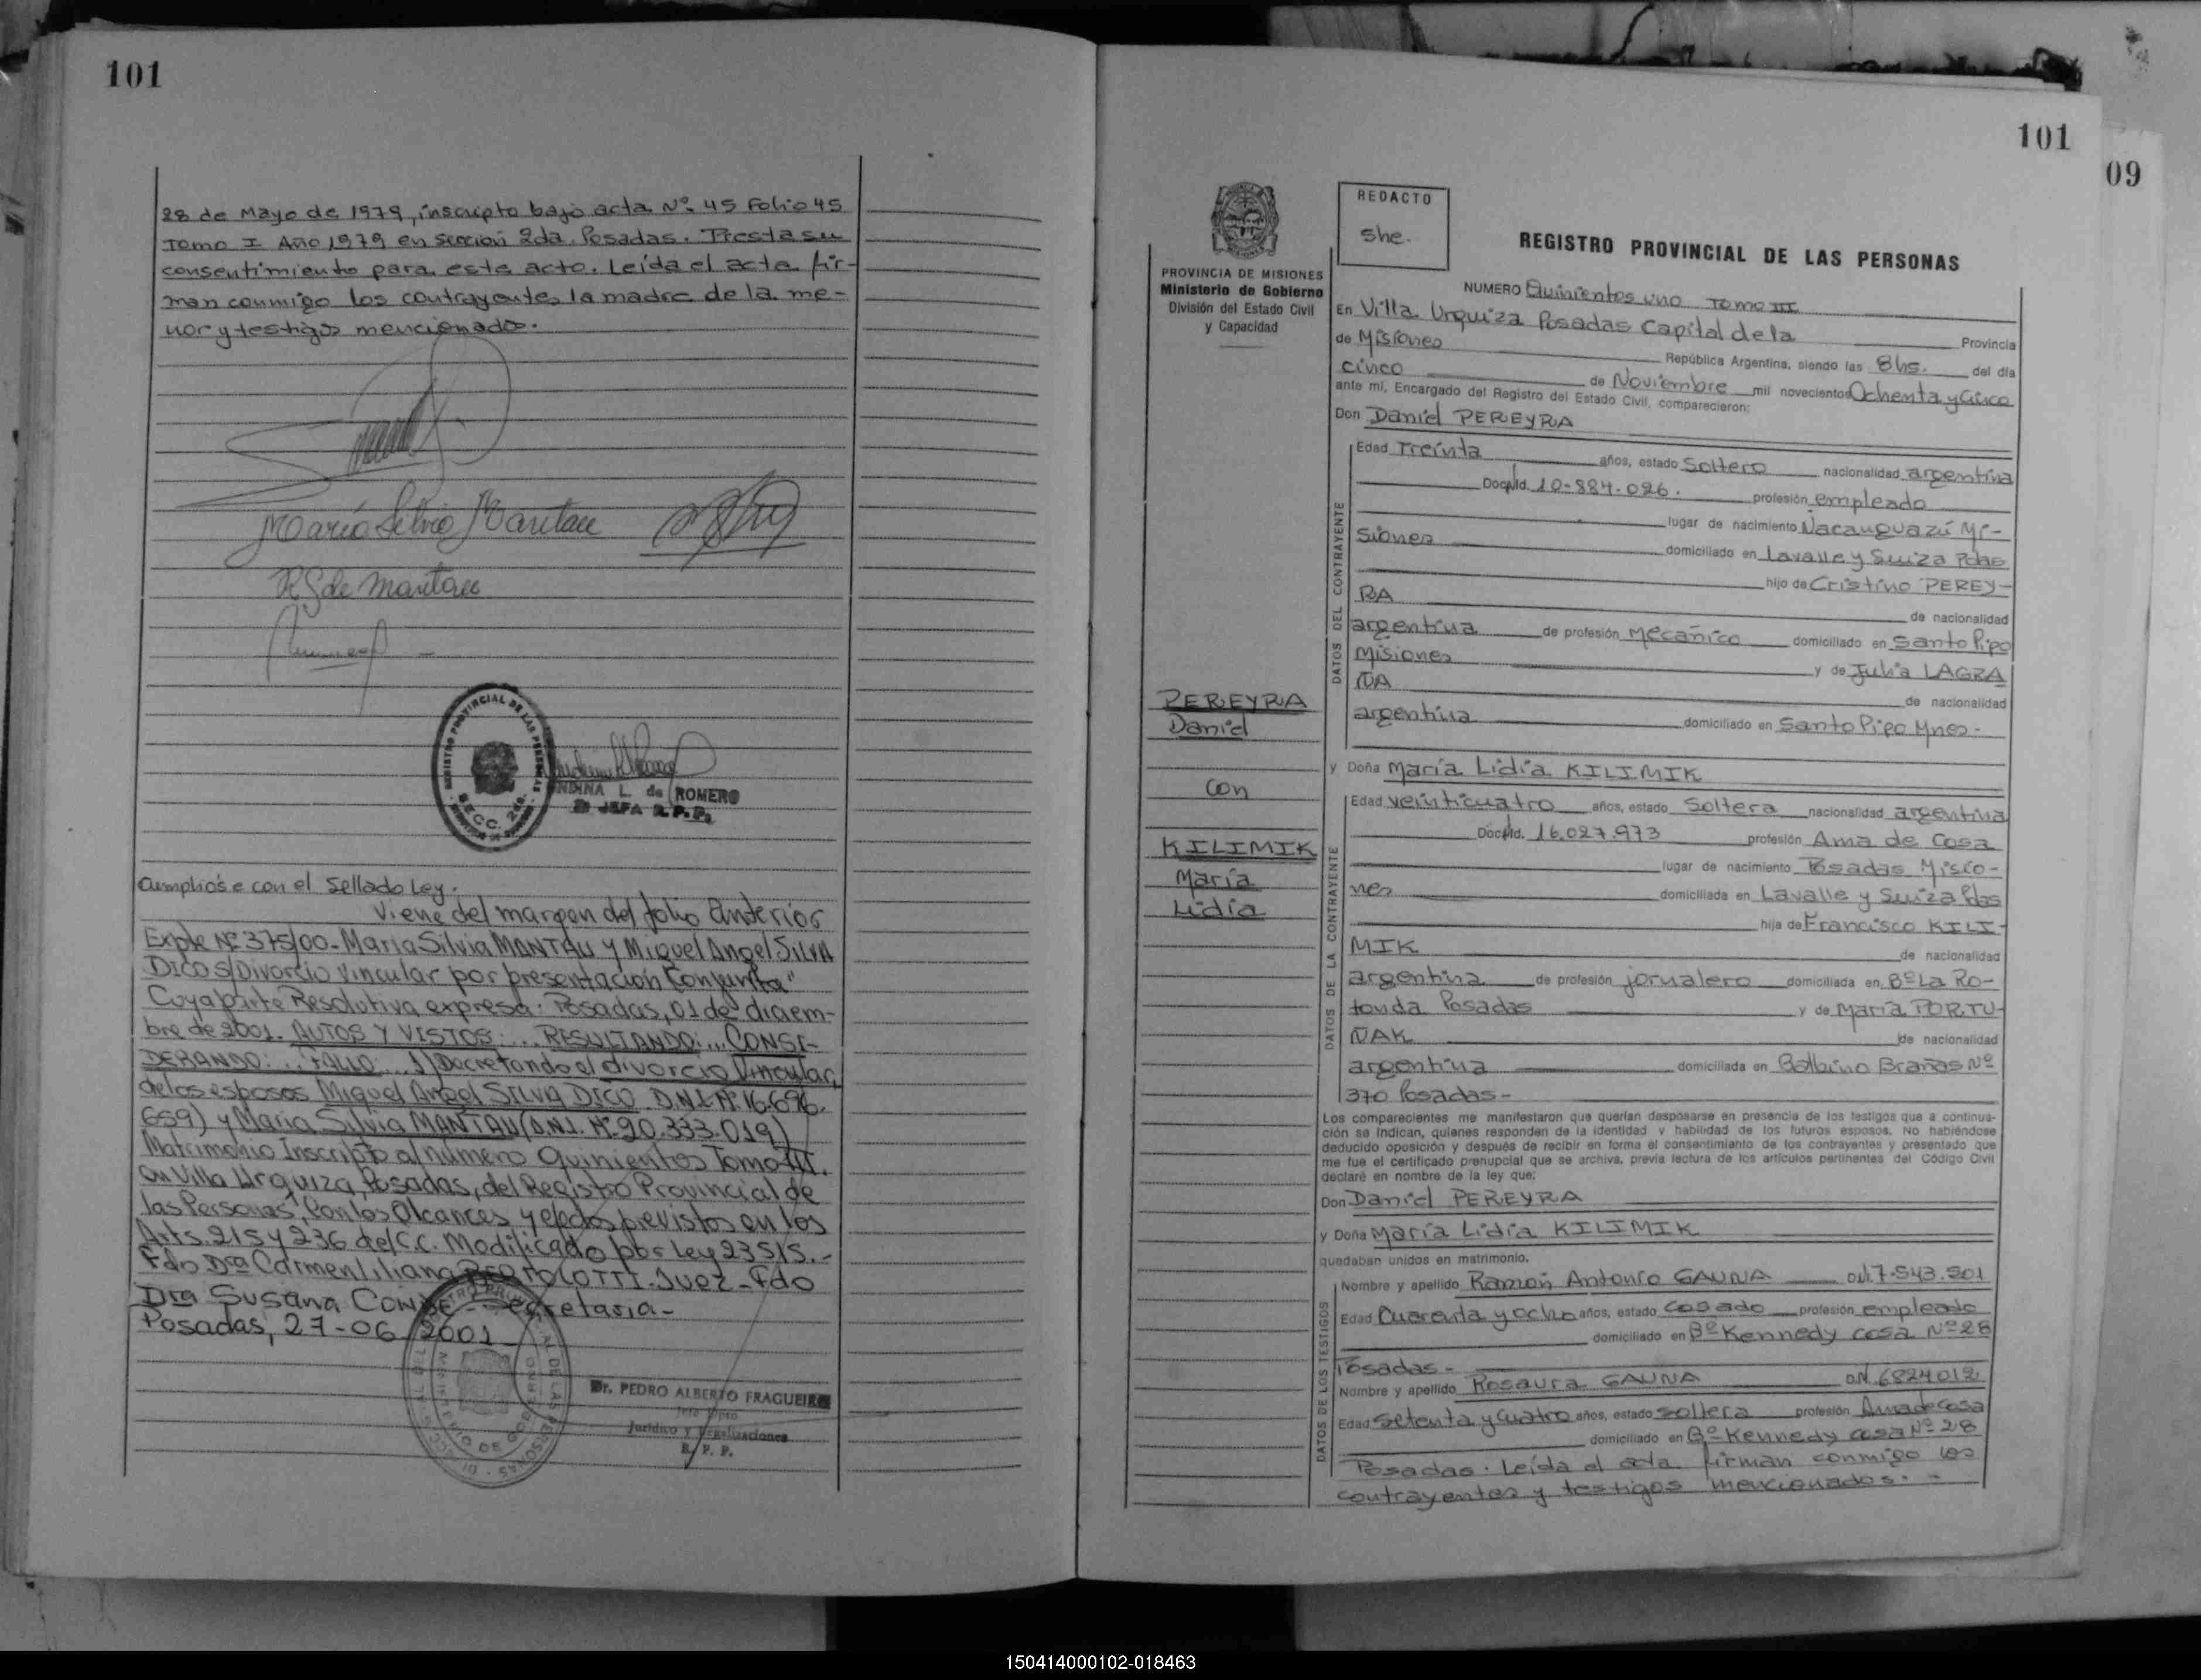 101
28 de Mayo de 1979, inscripto bajo acta Nº 45 Folio 45
Tomo I Año 1979 en sección 2da. Posadas. Presta su
consentimiento para este acto. Leída el acta fir-
man conmigo los contrayentes la madre de la me-
nor y testigos mencionados.
María Silvia Mantau
R S de Mantau
REGISTRO PROVINCIAL DE LAS PERSONAS
SECC. 2da.
NDINA L. de ROMERO
JEFA R.P.P.
Cumpliose con el Sellado Ley.
Viene del margen del folio Anterior
Expte Nº 375/00 - Maria Silvia MANTAU y Miguel Angel SILVA
DICO S/Divorcio Vincular por presentacion Conjunta"
Cuya parte Resolutiva expresa: Posadas, 01 de diciem-
bre de 2001. AUTOS Y VISTOS: ... RESULTANDO: ... CONSI-
DERANDO: ... FALLO: ... 1) Decretando el divorcio Vincular
de los esposos Miguel Angel SILVA DICO D.N.I. Nº 16.696.
659) y María Silvia MANTAU (D.N.I. Nº 20.333.019)
Matrimonio Inscripto al número Quinientos Tomo III.
en Villa Urquiza, Posadas, del Registro Provincial de
las Personas, Con los Alcances y efectos previstos en los
Arts. 215 y 236 del C.C. Modificado por Ley 23515.-
Fdo Dra Carmen Liliana BERTOLOTTI. Juez - Fdo
Dra Susana Secretaria -
Posadas, 27-06-2001
Dr. PEDRO ALBERTO FRAGUEIRO
Jefe Dpto
Jurídico y Legalizaciones
R. P. P.
101
09
PROVINCIA DE MISIONES
Ministerio de Gobierno
División del Estado Civil
y Capacidad
REDACTO
She.
REGISTRO PROVINCIAL DE LAS PERSONAS
NUMERO Quinientos uno Tomo III
En Villa Urquiza Posadas Capital de la Provincia
de Misiones República Argentina, siendo las 8 hs. del día
cinco de Noviembre mil novecientos Ochenta y Cinco
ante mí, Encargado del Registro del Estado Civil, comparecieron:
Don Daniel PEREYRA
DATOS DEL CONTRAYENTE
Edad Treinta años, estado Soltero nacionalidad argentina
Doc. Nd. 10-884-026. profesión empleado
lugar de nacimiento Ñacanguazú Mi-
siones domiciliado en Lavalle y Suiza Pdas
hijo de Cristino PEREY-
RA de nacionalidad
argentina de profesión Mecánico domiciliado en Santo Pipo
Misiones y de Julia LAGRA
ÑA de nacionalidad
argentina domiciliado en Santo Pipo Mnes-
PEREYRA
Daniel
con
KILIMIK
María
Lidia
y Doña María Lidia KILIMIK
DATOS DE LA CONTRAYENTE
Edad veinticuatro años, estado Soltera nacionalidad argentina
Doc. Nd. 16.027.973 profesión Ama de Casa
lugar de nacimiento Posadas Misio-
nes domiciliada en Lavalle y Suiza Pdas
hija de Francisco KILI-
MIK de nacionalidad
argentina de profesión jornalero domiciliada en Bº La Ro-
tonda Posadas y de María PORTU-
ÑAK de nacionalidad
argentina domiciliada en Balbino Brañas Nº
370 Posadas-
Los comparecientes me manifestaron que querían desposarse en presencia de los testigos que a continua-
ción se indican, quienes responden de la identidad y habilidad de los futuros esposos. No habiéndose
deducido oposición y después de recibir en forma el consentimiento de los contrayentes y presentado que
me fue el certificado prenupcial que se archiva, previa lectura de los artículos pertinentes del Código Civil
declaré en nombre de la ley que:
Don Daniel PEREYRA
y Doña María Lidia KILIMIK
quedaban unidos en matrimonio.
DATOS DE LOS TESTIGOS
Nombre y apellido Ramón Antonio GAUNA 7.543.501
Edad Cuarenta y ocho años, estado Casado profesión empleado
domiciliado en Bº Kennedy casa Nº 28
Posadas-
Nombre y apellido Rosaura GAUNA 6824012
Edad Setenta y cuatro años, estado soltera profesión Ama de casa
domiciliado en Bº Kennedy casa Nº 28
Posadas. Leída el acta firman conmigo los
contrayentes y testigos mencionados.-
150414000102-018463